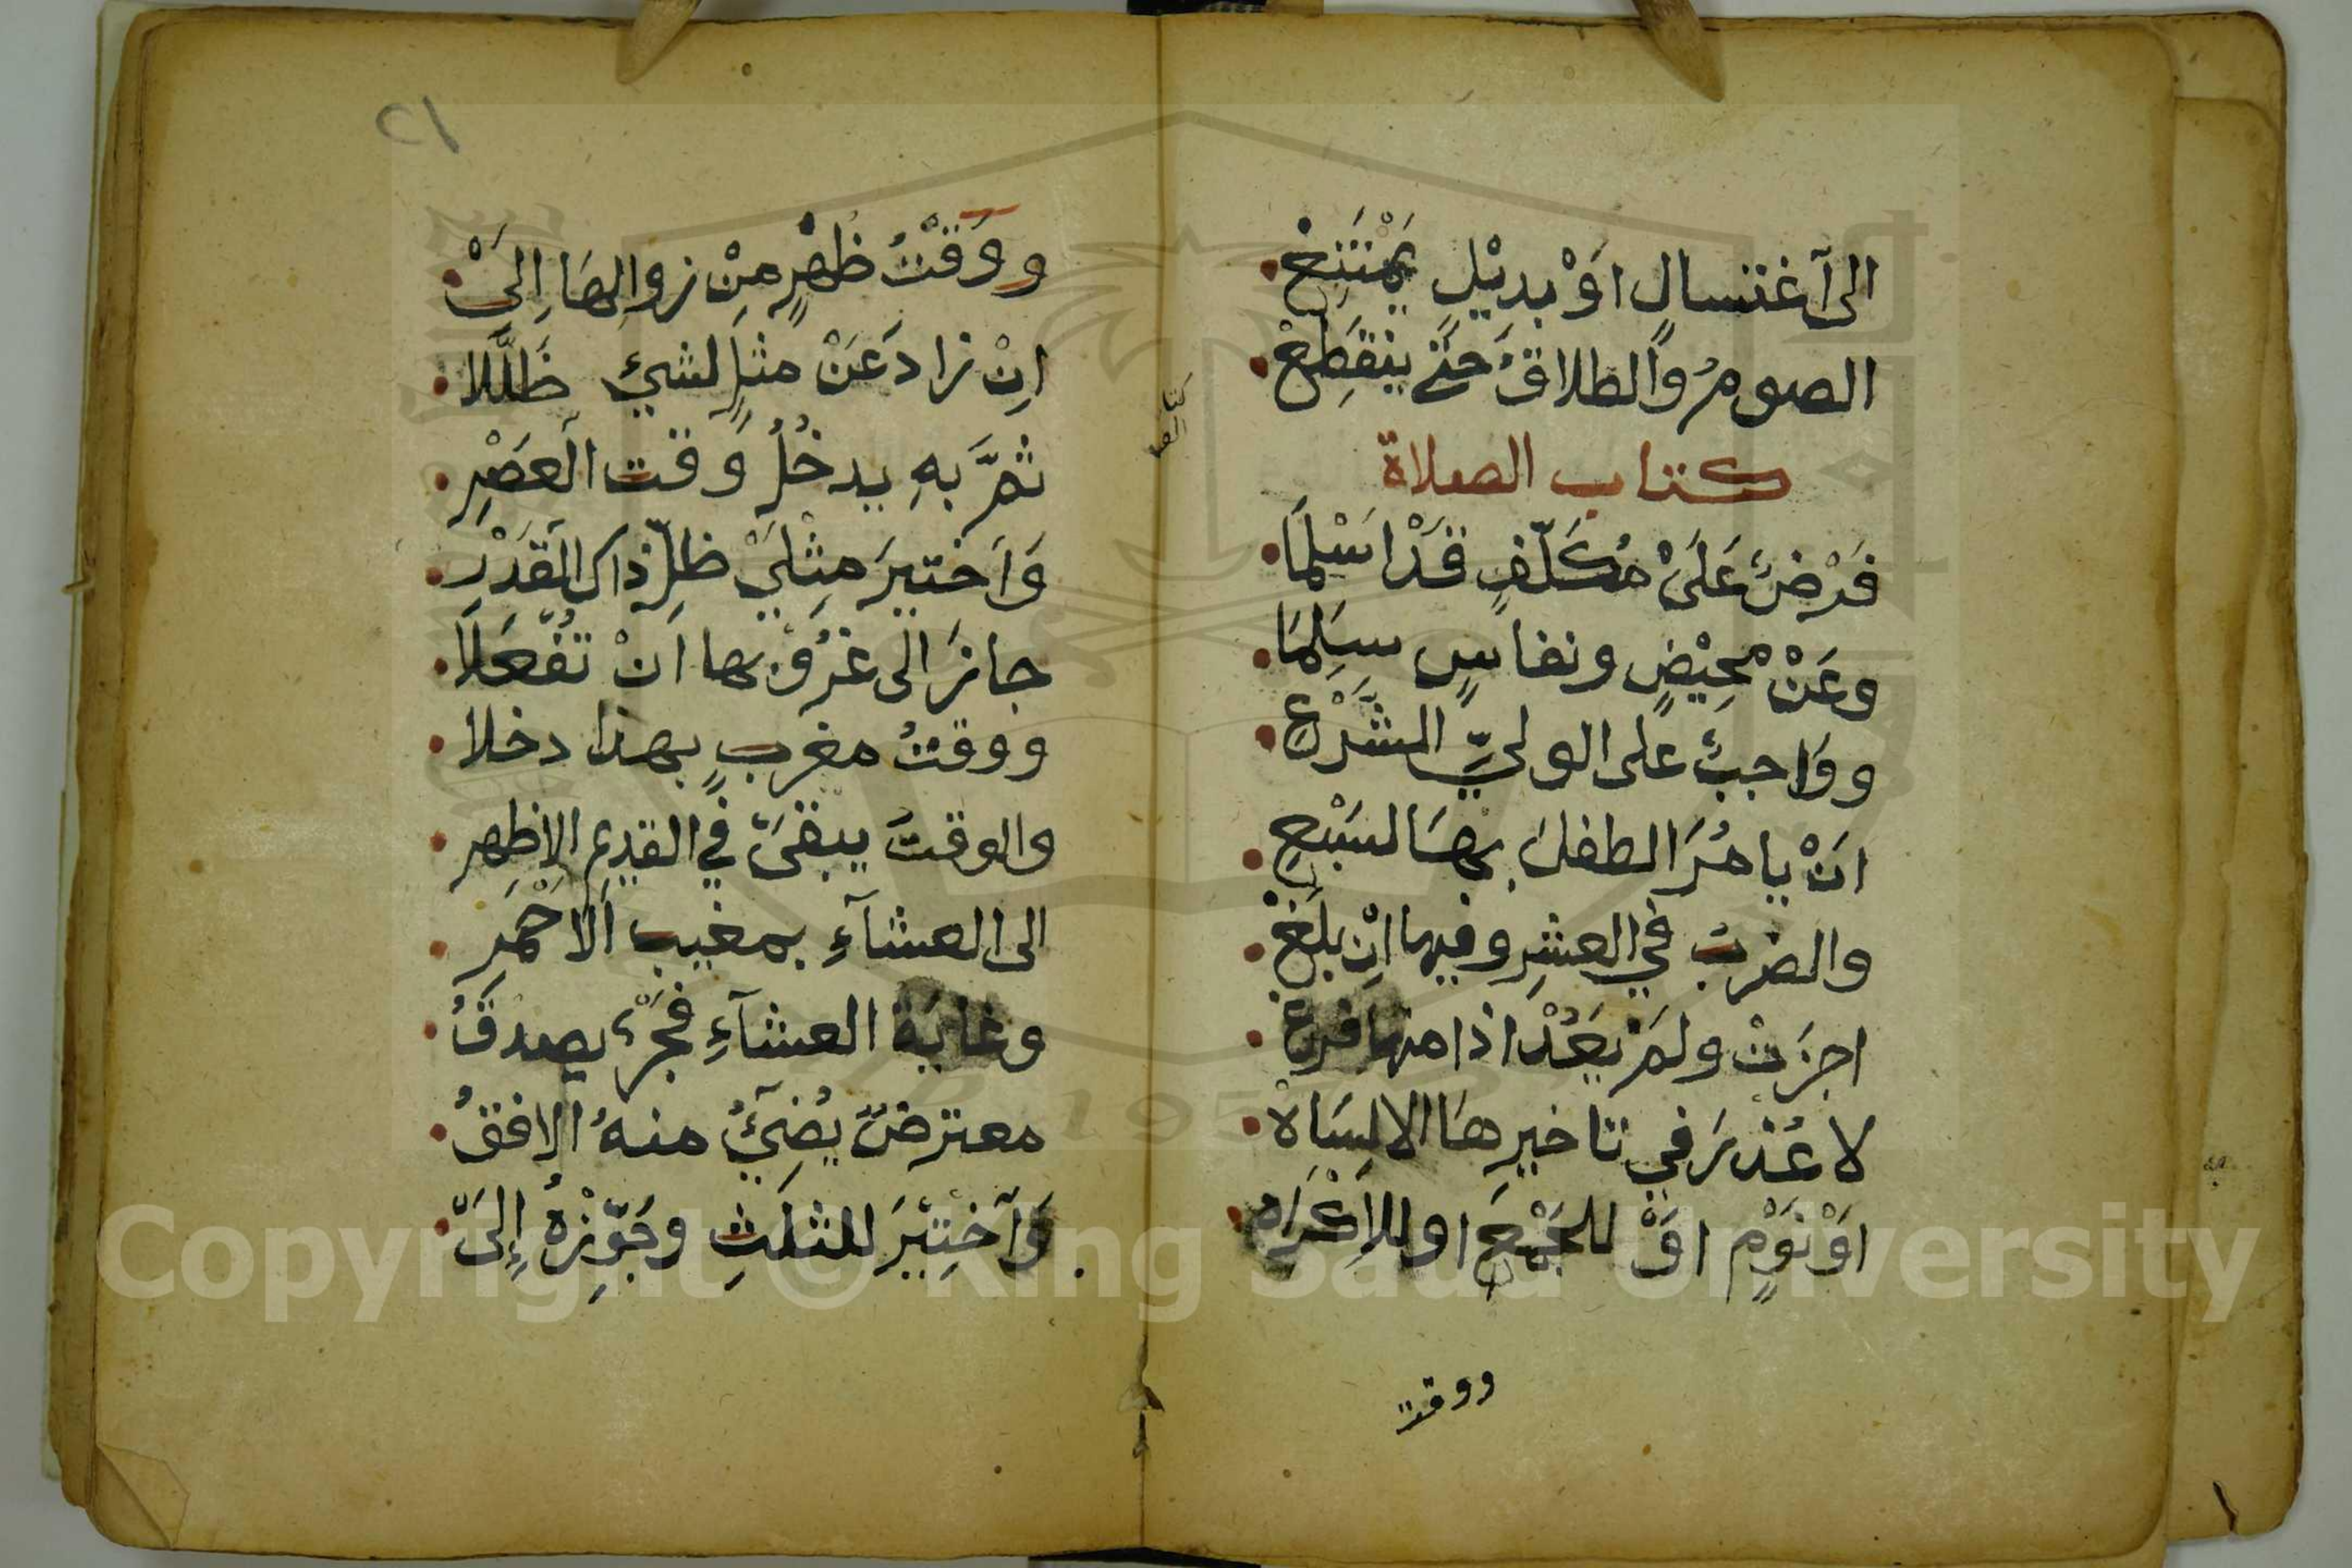 الى آغتسالٍ اَوْ بدِيْلِ يَمْتَنِعْ
الصومُ وَالطلاقُ حَتّى ينقَطِعْ
كتاب الصلاة
فَرْضٌ عَلَىْ مُكَلّفٍ قَدْ اَسْلَمَا
وعَنْ مَحِيْضٍ ونفاسٍ سَلِمَا
ووَاجبٌ على الوليِّ الشَّرْعِي
اَنْ يامُرَ الطفلَ بهَا لسَبْعِ
والضربُ في العشرِ وفيها اِنْ بلَغْ
اجزَتْ ولمْ يَعُدْ اذا منها فرغْ
لا عُذرَ في تاخيرِهَا الا لِسَاهْ
اَوْ نَوْمٍ اوْ للجَمْعِ او للاِكْرَاه
ووقت
كتاب الصلا
٢١
ووَقْتُ ظُهْرٍ مِنْ زوالِهَا اِلَىْ
اِنْ زادَ عَنْ مثلٍ لشيءٍ ظَلَّلا
ثمَّ بهِ يدخُلُ وَقت العَصْرِ
وَآختيرَ مِثْلَيْ ظلِّ ذاك القَدْرِ
جازَ الى غرُوْبها انْ تُفْعَلا
ووقتُ مغربٍ بهذا دخلا
والوقتُ يبقىَ في القديمِ الاظهرِ
الى العشآءِ بمغيبِ الاَحْمَرِ
وغايَة العشآءِ فَجْرٌ يصدقُ
معترضٌ يُضِيْٓئُ منهُ الافقُ
وَآخِتيْرَ للثلَثِ وجَوِّزْهُ اِلىَ
Copyright © King Saud University
195